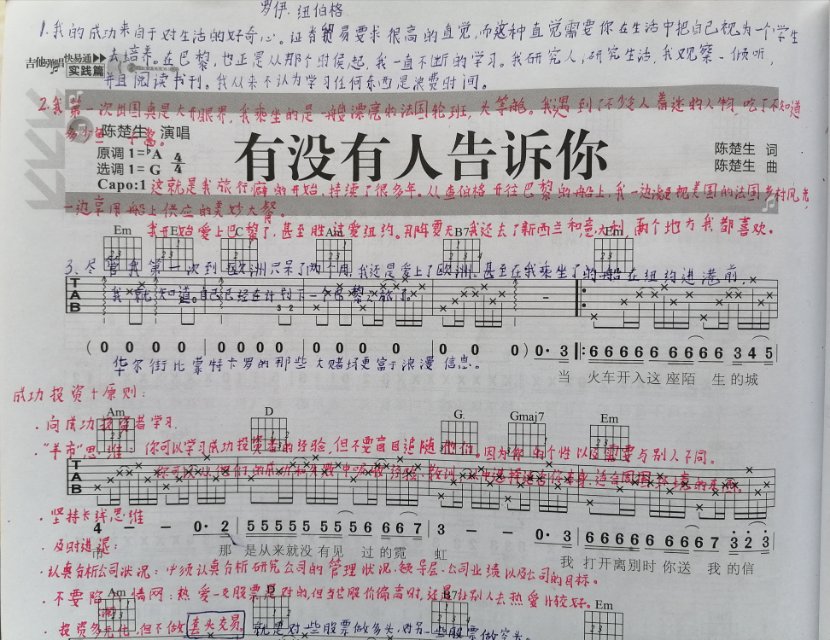 罗伊·纽伯格
1.我的成功来自于对生活的好奇心。证券贸易要求很高的直觉,而这种直觉需要你在生活中把自己视为一个学生
去培养。在巴黎,也正是从那个时候起,我一直不断的学习。我研究人,研究生活,我观察、倾听,
吉他弹唱 快易通
实践篇
并且阅读书刊。我从来不认为学习任何东西是浪费时间。
2.我第一次出国真是大开眼界,我乘坐的是一艘漂亮的法国轮班,头等舱。我遇到了不少迷人着迷的人物,吃了不知道
多少
陈楚生 演唱
有没有人告诉你
原调 1=♭A 4/4
选调 1=G
Capo:1
陈楚生 词
陈楚生 曲
这就是我旅行癖的开始,持续了很多年。从查伯格开往巴黎的船上,我一边凝视美国的法国乡村风光,
一边享用船上供应的美妙大餐。
我开始爱上巴黎了,甚至胜过爱纽约。那年夏天我还去了新西兰和意大利,两个地方我都喜欢。
Em C Am B7 Em
3.尽管我第一次到欧洲只呆了两个月,我还是爱上了欧洲。甚至在我乘坐了的船在纽约进港前,
我就知道自己已经在计划下一个巴黎之旅了。
T A B
( 0 0 0 0 0 0 0 0 0 0 0 0 0) 0· 3 6 6 6 6 6 6 6 6 3 4 5
当 火车开入这座陌 生的城
华尔街比蒙特卡罗的那些大赌场更富于浪漫信息。
成功投资十原则:
Am D G Gmaj7 Em
·向成功投资者学习.
·"羊市"思维:你可以学习成功投资者的经验,但不要盲目追随他们。因为你的个性以及需要与别人不同。
你可以从他们的成功和失败中吸取经验、教训,从中选择适合你本身、适合周围环境的东西。
T A B
·坚持长线思维
4 – – 0· 2 5 5 5 5 5 5 5 6 6 6 7 3 – – 0· 3 6 6 6 6 6 6 6 6 7 3 2 3
市 那 是从来就没有见 过的霓 虹 我 打开离别时你送 我的信
·及时进退:
·认真分析公司状况:必须认真分析研究公司的管理状况、领导层、公司业绩以及公司的目标。
·不要陷入情网:热爱一只股票是对的,但当股价偏高时,还是让别人去热爱比较好。
Am B7 Em
·投资多元化,但不做套头交易。就是对一些股票做多头,对另一些股票做空头。